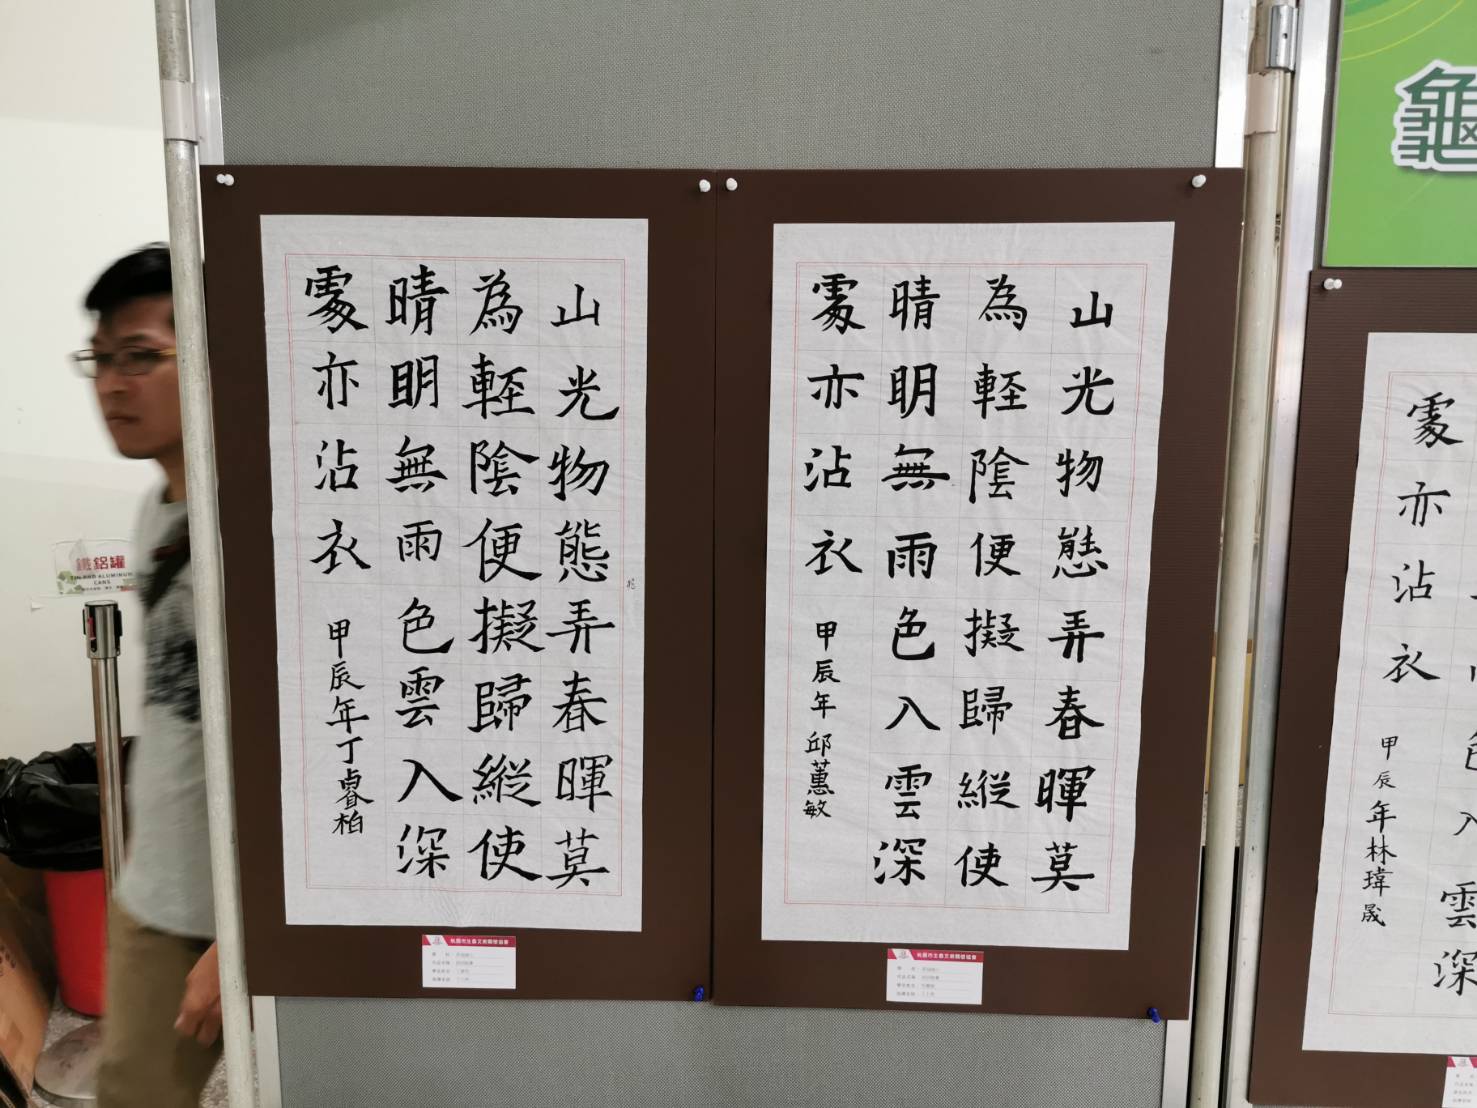 山光物態弄春暉莫
為輕陰便擬歸縱使
晴明無雨色雲入深
處亦沾衣
甲辰年丁睿柏
桃園市生泰文教關懷協會
山光物態弄春暉莫
為輕陰便擬歸縱使
晴明無雨色雲入深
處亦沾衣
甲辰年邱蕙敏
色入雲深
處亦沾衣
甲辰年林瑋晟
龜
鐵鋁罐
TIN AND ALUMINUM
CANS